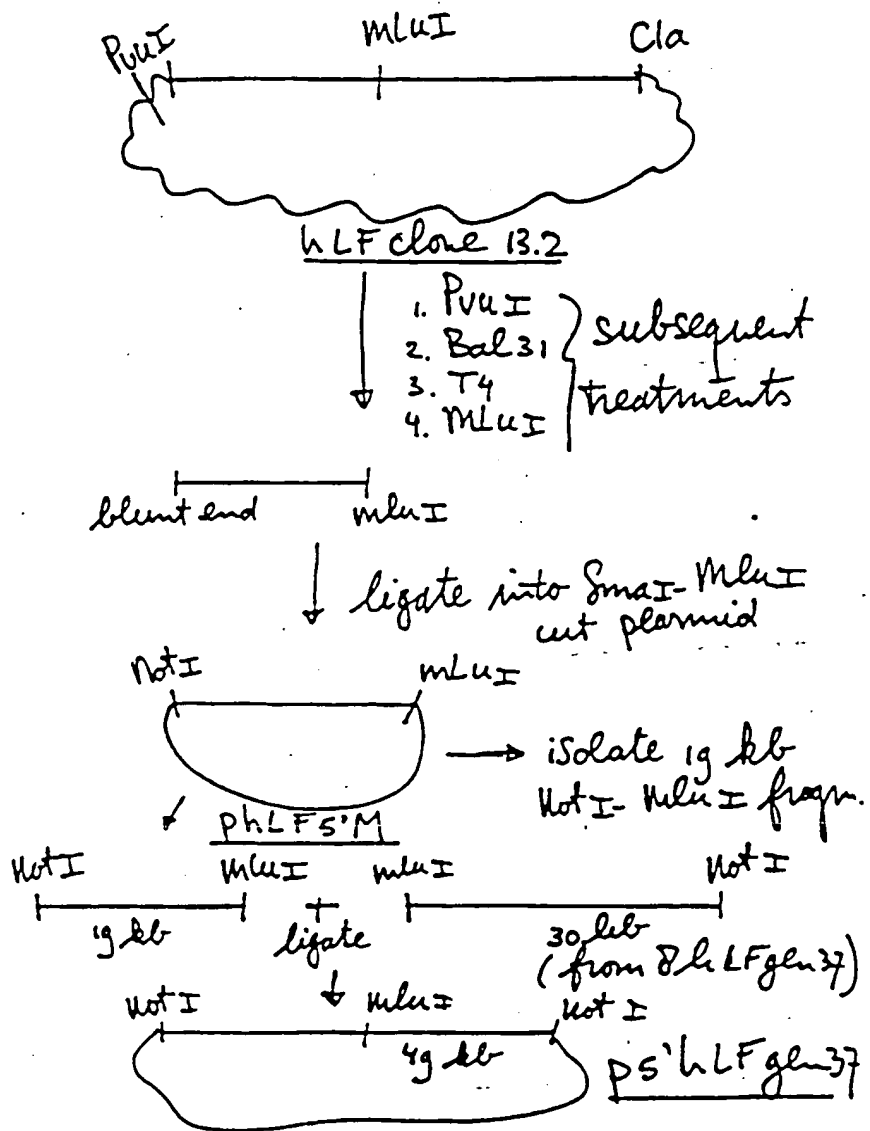 PvuI mluI Cla
hLF clone 13.2
1. PvuI
2. Bal31
3. T4
4. MLuI
subsequent
treatments
blunt end mluI
ligate into SmaI-MluI
cut plasmid
NotI mLuI
→ isolate 19 kb
NotI-MluI fragm.
phLF5'M
NotI MluI mluI NotI
19 kb + ligate 30 kb
(from 8hLFgen37)
NotI mluI NotI
49 kb
p5'hLFgen37